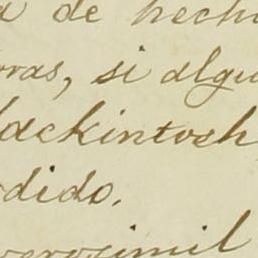 a de hech
oras, si algu
Mackintosh
dido.
verosimil